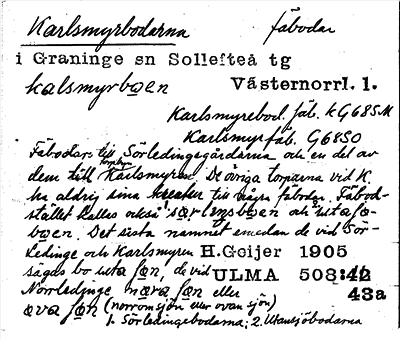 Karlsmyrbodarna fäbodar
i Graninge sn Sollefteå tg
kalsmyrbɷen Västernorrl. l.
Karlsmyrebod. fäb. KG68SM
Karlsmyrfäb. G68SO
Fäbodar till Sörledingegårdarna och en del av
dem till torpbyn Karlsmyren. De övriga torparna vid K.
ha aldrig sina kreatur till några fäbodar. Fäbod-
stället kallas också och
bɷen. Det sista namnet emedan de vid Sör-
Ledinge och Karlsmyren H.Geijer 1905
sägas bo uta de vid ULMA 508:42
Norrledinge eller 43a
ɷva (norrom sjön eller ovan sjön)
1. Sörledingebodarna; 2. Utansjöbodarna